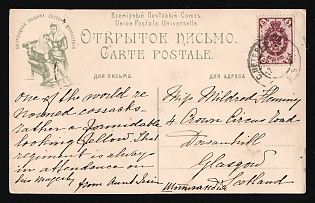 Всемірный Почтовый Союзъ.
Union Postale Universelle.
ОТКРЫТОЕ ПИСЬМО.
CARTE POSTALE.
ДЛЯ ПИСЬМА.
ДЛЯ АДРЕСА
one of the world re
nowned cossacks.
rather a formidable
looking fellow. That
regiment is always
in attendance on
his majesty
from Aunt
Miss Mildred Fleming
4 Crown Circus Road
Dowanhill
Glasgow
Scotland